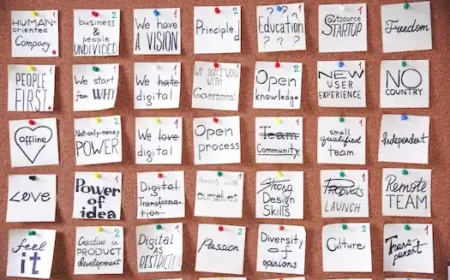 HUMAN-
ORIENTED
Company
1
business
& people
UNDIVIDED
2
We have
A VISION
1
Principle!
2
Education
? ? ? ?
1
Outsource
STARTUP
1
Freedom
2
PEOPLE
FIRST.
1
We start
from WHY
1
We hate
digital
1
We don't work
with
Government
2
Open
knowledge
2
NEW
USER
EXPERIENCE
1
NO
COUNTRY
2
offline
Not-only-money
POWER
2
We love
digital
1
Open
process
2
Team
Community
2
small
qualified
TEAM
1
Independent
LOVE
1
Power of
idea
1
Digital
Transforma-
tion
1
ourselves
2
Strong
Design
Skills
LAUNCH
1
Remote
TEAM
2
feel
it
2
Creative in
PRODUCT
development
2
Digital
AS
RESTRICTED
1
Passion
2
Diversity
of
opinions
2
Culture
2
Trans
parent
1